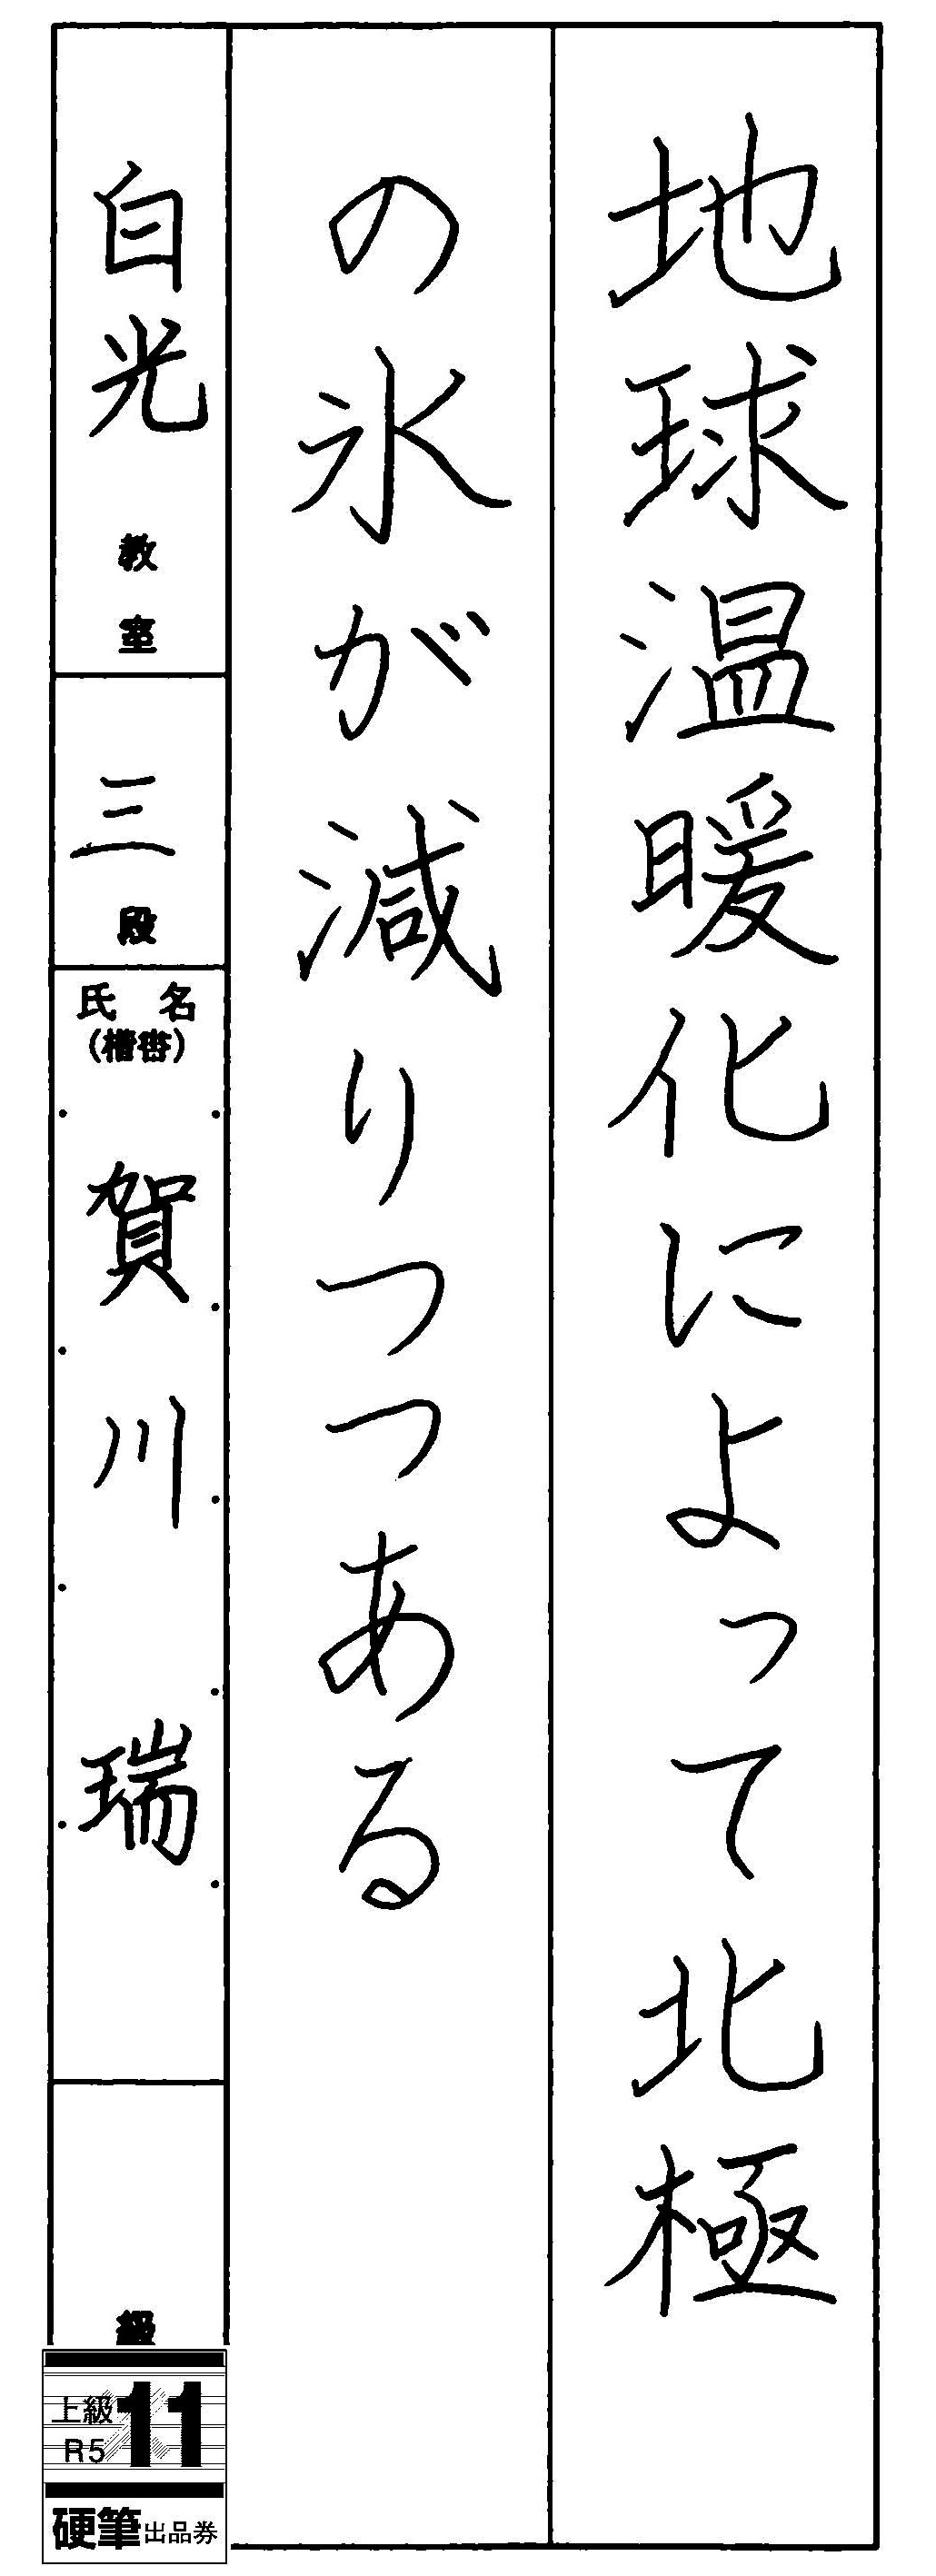 地球温暖化によって北極
の氷が減りつつある
白光教室
三段
氏名
（楷書）
賀川瑞
級
上級
R5
11
硬筆出品券